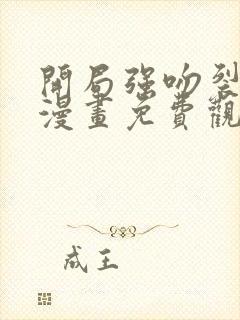 開局強吻裂
漫畫免費觀
成王